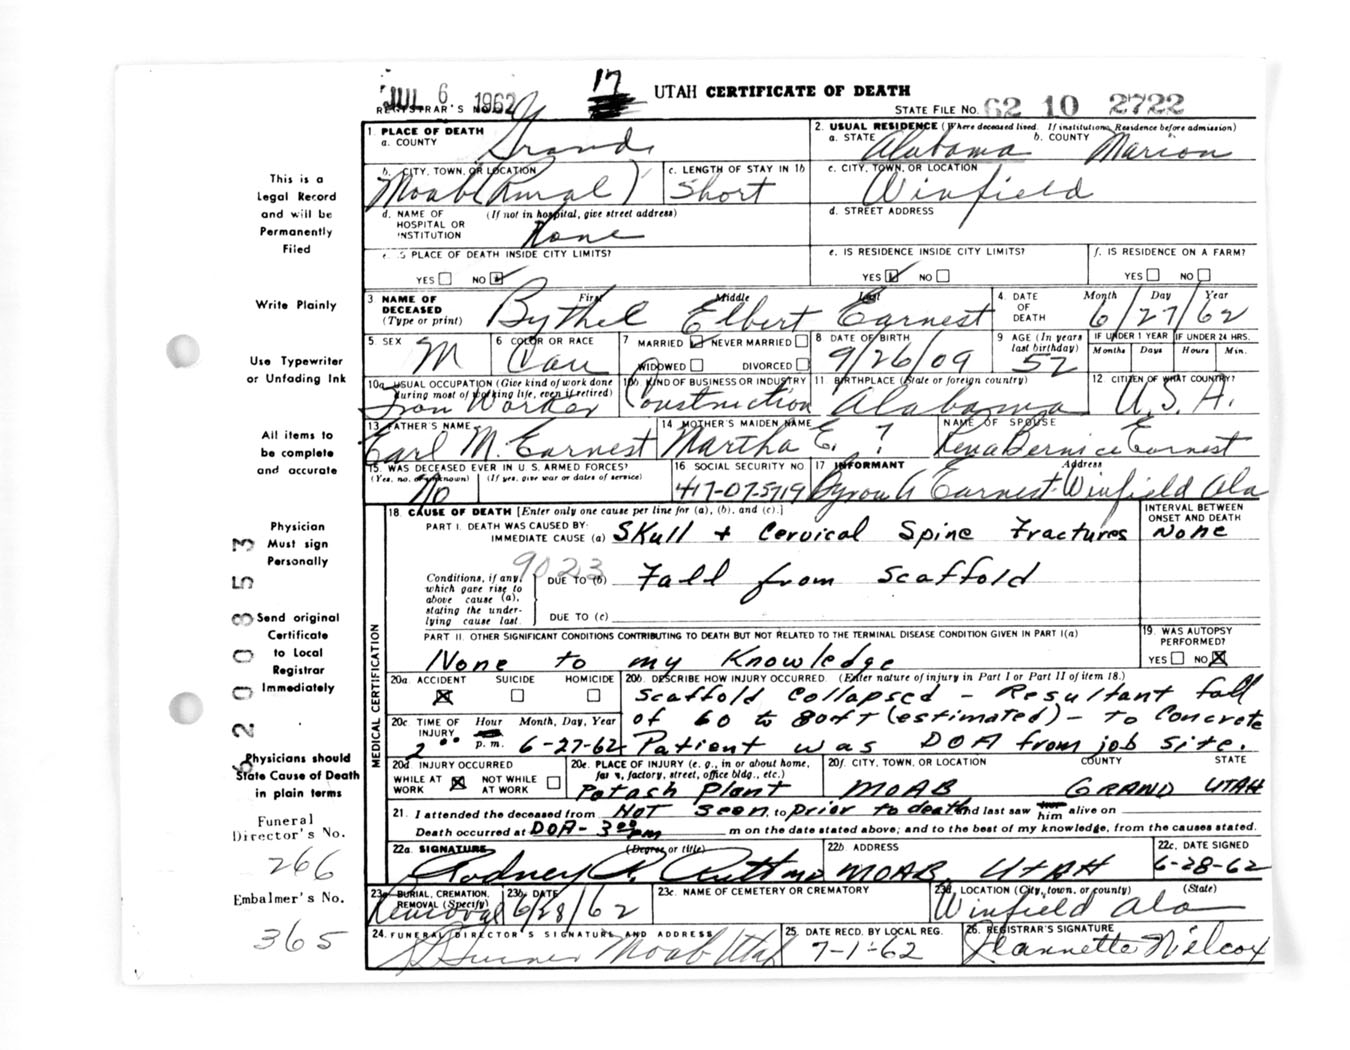 JUL 6 1962
17
UTAH CERTIFICATE OF DEATH
REGISTRAR'S NO.
STATE FILE NO. 62 10 2722
1. PLACE OF DEATH
a. COUNTY Grand
2. USUAL RESIDENCE (Where deceased lived. If institution, Residence before admission)
a. STATE Alabama b. COUNTY Marion
b. CITY, TOWN, OR LOCATION Moab (Rural)
c. LENGTH OF STAY IN 1b Short
c. CITY, TOWN, OR LOCATION Winfield
d. NAME OF HOSPITAL OR INSTITUTION (If not in hospital, give street address) None
d. STREET ADDRESS
e. IS PLACE OF DEATH INSIDE CITY LIMITS?
YES NO
e. IS RESIDENCE INSIDE CITY LIMITS?
YES NO
f. IS RESIDENCE ON A FARM?
YES NO
3 NAME OF DECEASED (Type or print) First Middle Last
Bythel Elbert Earnest
4. DATE OF DEATH Month Day Year
6/27/62
5 SEX M
6 COLOR OR RACE Cau
7 MARRIED NEVER MARRIED
WIDOWED DIVORCED
8 DATE OF BIRTH 9/26/09
9 AGE (In years last birthday) 52
IF UNDER 1 YEAR Months Days
IF UNDER 24 HRS. Hours Min.
10a. USUAL OCCUPATION (Give kind of work done during most of working life, even if retired)
Iron Worker
10b. KIND OF BUSINESS OR INDUSTRY
Construction
11 BIRTHPLACE (State or foreign country)
Alabama
12 CITIZEN OF WHAT COUNTRY?
U.S.A.
13 FATHER'S NAME
Earl M. Earnest
14 MOTHER'S MAIDEN NAME
Martha E. ?
NAME OF SPOUSE
Bernice Earnest
15. WAS DECEASED EVER IN U.S. ARMED FORCES?
(Yes, no, or unknown) (If yes, give war or dates of service)
No
16 SOCIAL SECURITY NO
417-07-5719
17 INFORMANT Address
Byron A Earnest-Winfield Ala
18. CAUSE OF DEATH [Enter only one cause per line for (a), (b), and (c).]
INTERVAL BETWEEN ONSET AND DEATH
PART I. DEATH WAS CAUSED BY:
IMMEDIATE CAUSE (a) Skull + Cervical Spine Fractures None
9023
Conditions, if any, which gave rise to above cause (a), stating the underlying cause last.
DUE TO (b) Fall from Scaffold
DUE TO (c)
PART II. OTHER SIGNIFICANT CONDITIONS CONTRIBUTING TO DEATH BUT NOT RELATED TO THE TERMINAL DISEASE CONDITION GIVEN IN PART I(a)
None to my Knowledge
19. WAS AUTOPSY PERFORMED?
YES NO
20a. ACCIDENT SUICIDE HOMICIDE
20b. DESCRIBE HOW INJURY OCCURRED. (Enter nature of injury in Part I or Part II of item 18.)
Scaffold Collapsed - Resultant fall
of 60 to 80 ft (estimated) - to Concrete
Patient was DOA from job site.
20c. TIME OF INJURY Hour Month, Day, Year
2 00 p.m. 6-27-62
20d INJURY OCCURRED
WHILE AT WORK NOT WHILE AT WORK
20e. PLACE OF INJURY (e. g., in or about home, farm, factory, street, office bldg., etc.)
Potash Plant
20f. CITY, TOWN, OR LOCATION COUNTY STATE
MOAB GRAND UTAH
21. I attended the deceased from NOT seen, to prior to death and last saw him alive on
Death occurred at DOA - 3 00 pm m on the date stated above; and to the best of my knowledge, from the causes stated.
22a. SIGNATURE (Degree or title)
Rodney
22b. ADDRESS
MOAB, UTAH
22c. DATE SIGNED
6-28-62
23a. BURIAL, CREMATION, REMOVAL (Specify)
Removal
23b. DATE
6/28/62
23c. NAME OF CEMETERY OR CREMATORY
23d. LOCATION (City, town, or county) (State)
Winfield Ala
24. FUNERAL DIRECTOR'S SIGNATURE AND ADDRESS
Moab Utah
25. DATE RECD. BY LOCAL REG.
7-1-62
26. REGISTRAR'S SIGNATURE
Jeannette Wilcox
MEDICAL CERTIFICATION
This is a
Legal Record
and will be
Permanently
Filed
Write Plainly
Use Typewriter
or Unfading Ink
All items to
be complete
and accurate
Physician
Must sign
Personally
Send original
Certificate
to Local
Registrar
Immediately
Physicians should
State Cause of Death
in plain terms
Funeral
Director's No.
266
Embalmer's No.
365